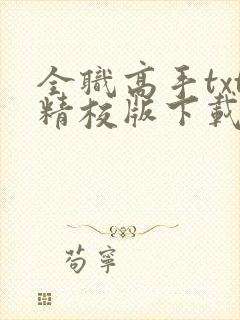 全職高手txt
精校版下載
苟寧